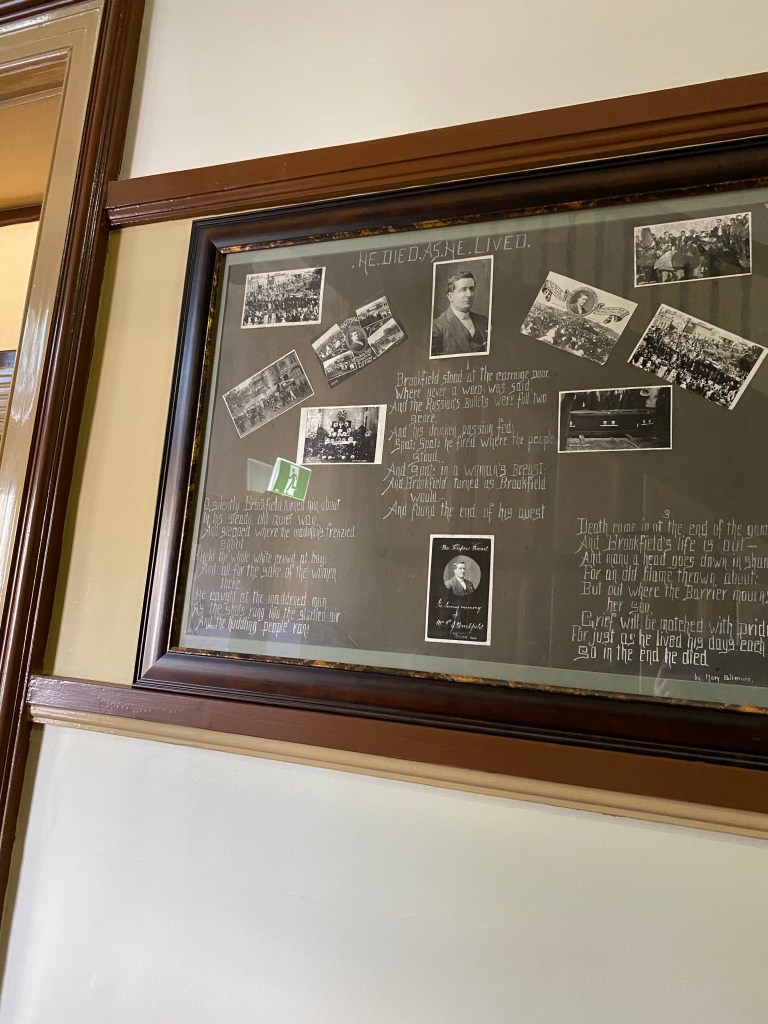 .HE.DIED.AS.HE.LIVED.
1
Brookfield stood at the carriage door,
Where never a word was said,
And the Russian's bullets were full two
score,
And his drunken passion fed;
Spat; Spat; he fired where the people
stood,
And Spat; in a woman's Breast;
And Brookfield turned as Brookfield
would—
And found the end of his quest
O, silently Brookfield turned him about
In his steady old quiet way,
And stepped where the madman's frenzied
shout
Held the white white crowd at bay;
And all for the sake of the women
there
He caught at the maddened man,
As the shots rang into the startled air
And the huddling people ran;
The Toilers Friend
In loving memory
3
Death came in at the end of the
And Brookfield's life is out—
And many a head goes down in
For an old blame thrown about;
But out where the Barrier
her son,
Grief will be matched with
For just as he lived his days each
So in the end he died
by Mary Gilmore.